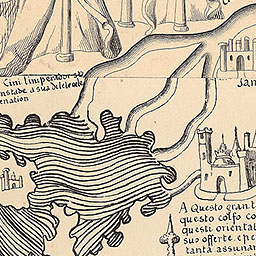 Cini l'imperador
nstade a sua de
enation
Jan
A Questo gran t
questo colfo co
questi oriental
suo offerte. e pe
tanta assunar